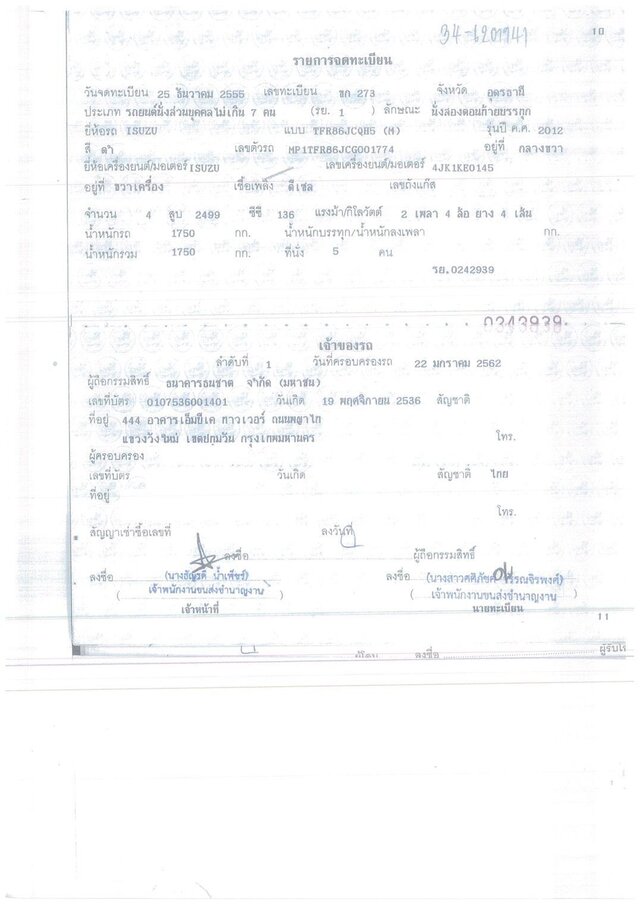 34-6201941
10
รายการจดทะเบียน
วันจดทะเบียน 25 ธันวาคม 2555 เลขทะเบียน ขก 273 จังหวัด อุดรธานี
ประเภท รถยนต์นั่งส่วนบุคคลไม่เกิน 7 คน (รย. 1 ) ลักษณะ นั่งสองตอนท้ายบรรทุก
ยี่ห้อรถ ISUZU แบบ TFR86JCQH5 (M) รุ่นปี ค.ศ. 2012
สี ดำ เลขตัวรถ MP1TFR86JCG001774 อยู่ที่ กลางขวา
ยี่ห้อเครื่องยนต์/มอเตอร์ ISUZU เลขเครื่องยนต์/มอเตอร์ 4JK1KE0145
อยู่ที่ ขวาเครื่อง เชื้อเพลิง ดีเซล เลขถังแก๊ส
จำนวน 4 สูบ 2499 ซีซี 136 แรงม้า/กิโลวัตต์ 2 เพลา 4 ล้อ ยาง 4 เส้น
น้ำหนักรถ 1750 กก. น้ำหนักบรรทุก/น้ำหนักลงเพลา กก.
น้ำหนักรวม 1750 กก. ที่นั่ง 5 คน
รย.0242939
0343939
เจ้าของรถ
ลำดับที่ 1 วันที่ครอบครองรถ 22 มกราคม 2562
ผู้ถือกรรมสิทธิ์ ธนาคารธนชาต จำกัด (มหาชน)
เลขที่บัตร 0107536001401 วันเกิด 19 พฤศจิกายน 2536 สัญชาติ
ที่อยู่ 444 อาคารเอ็มบีเค ทาวเวอร์ ถนนพญาไท
แขวงวังใหม่ เขตปทุมวัน กรุงเทพมหานคร โทร.
ผู้ครอบครอง
เลขที่บัตร วันเกิด สัญชาติ ไทย
ที่อยู่
โทร.
สัญญาเช่าซื้อเลขที่ ลงวันที่
ลงชื่อ ผู้ถือกรรมสิทธิ์
ลงชื่อ ลงชื่อ
( เจ้าพนักงานขนส่งชำนาญงาน ) ( เจ้าพนักงานขนส่งชำนาญงาน )
เจ้าหน้าที่ นายทะเบียน
11
ลงชื่อ